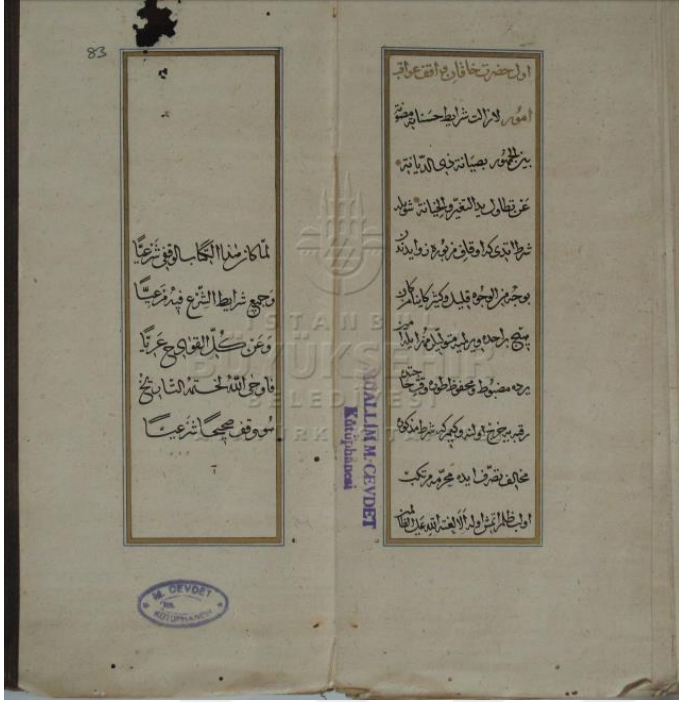 اول حضرت خاقان واقف عواقب
امور لازالت شرايط حسناته
بين الجمهور بصيانة ذوى الديانة
عن تطاول يد التغير والخيانة شويله
شرط ايتدى كه اوقاف مزبوره زوايدندن
بوجه من الوجوه قليل وكثير كائنا من كان
هيچ بر احده ويرلميه متوليلر
يرده مضبوط ومحفوظ طوره وقت حاجتده
رقبه يه خرج اولنه وكيم كه شرط مذكوره
مخالف تصرف ايده محرمه مرتكب
اولب ظلم ايتمش اوله الا لعنة الله على الظالمين
83
لما كان هذا الكتاب الوقفى شرعيا
وجميع شرايط الشرع فيه مرعيا
وعن كل القوادح عريا
فاوحى الله لختمه التاريخ
سو وقف صحيحا شرعيا
MUALLİM M. CEVDET
Kütüphanesi
M. CEVDET
KÜTÜPHANESİ
İSTANBUL
BÜYÜKŞEHİR
BELEDİYESİ
ATATÜRK KİTAPLIĞI